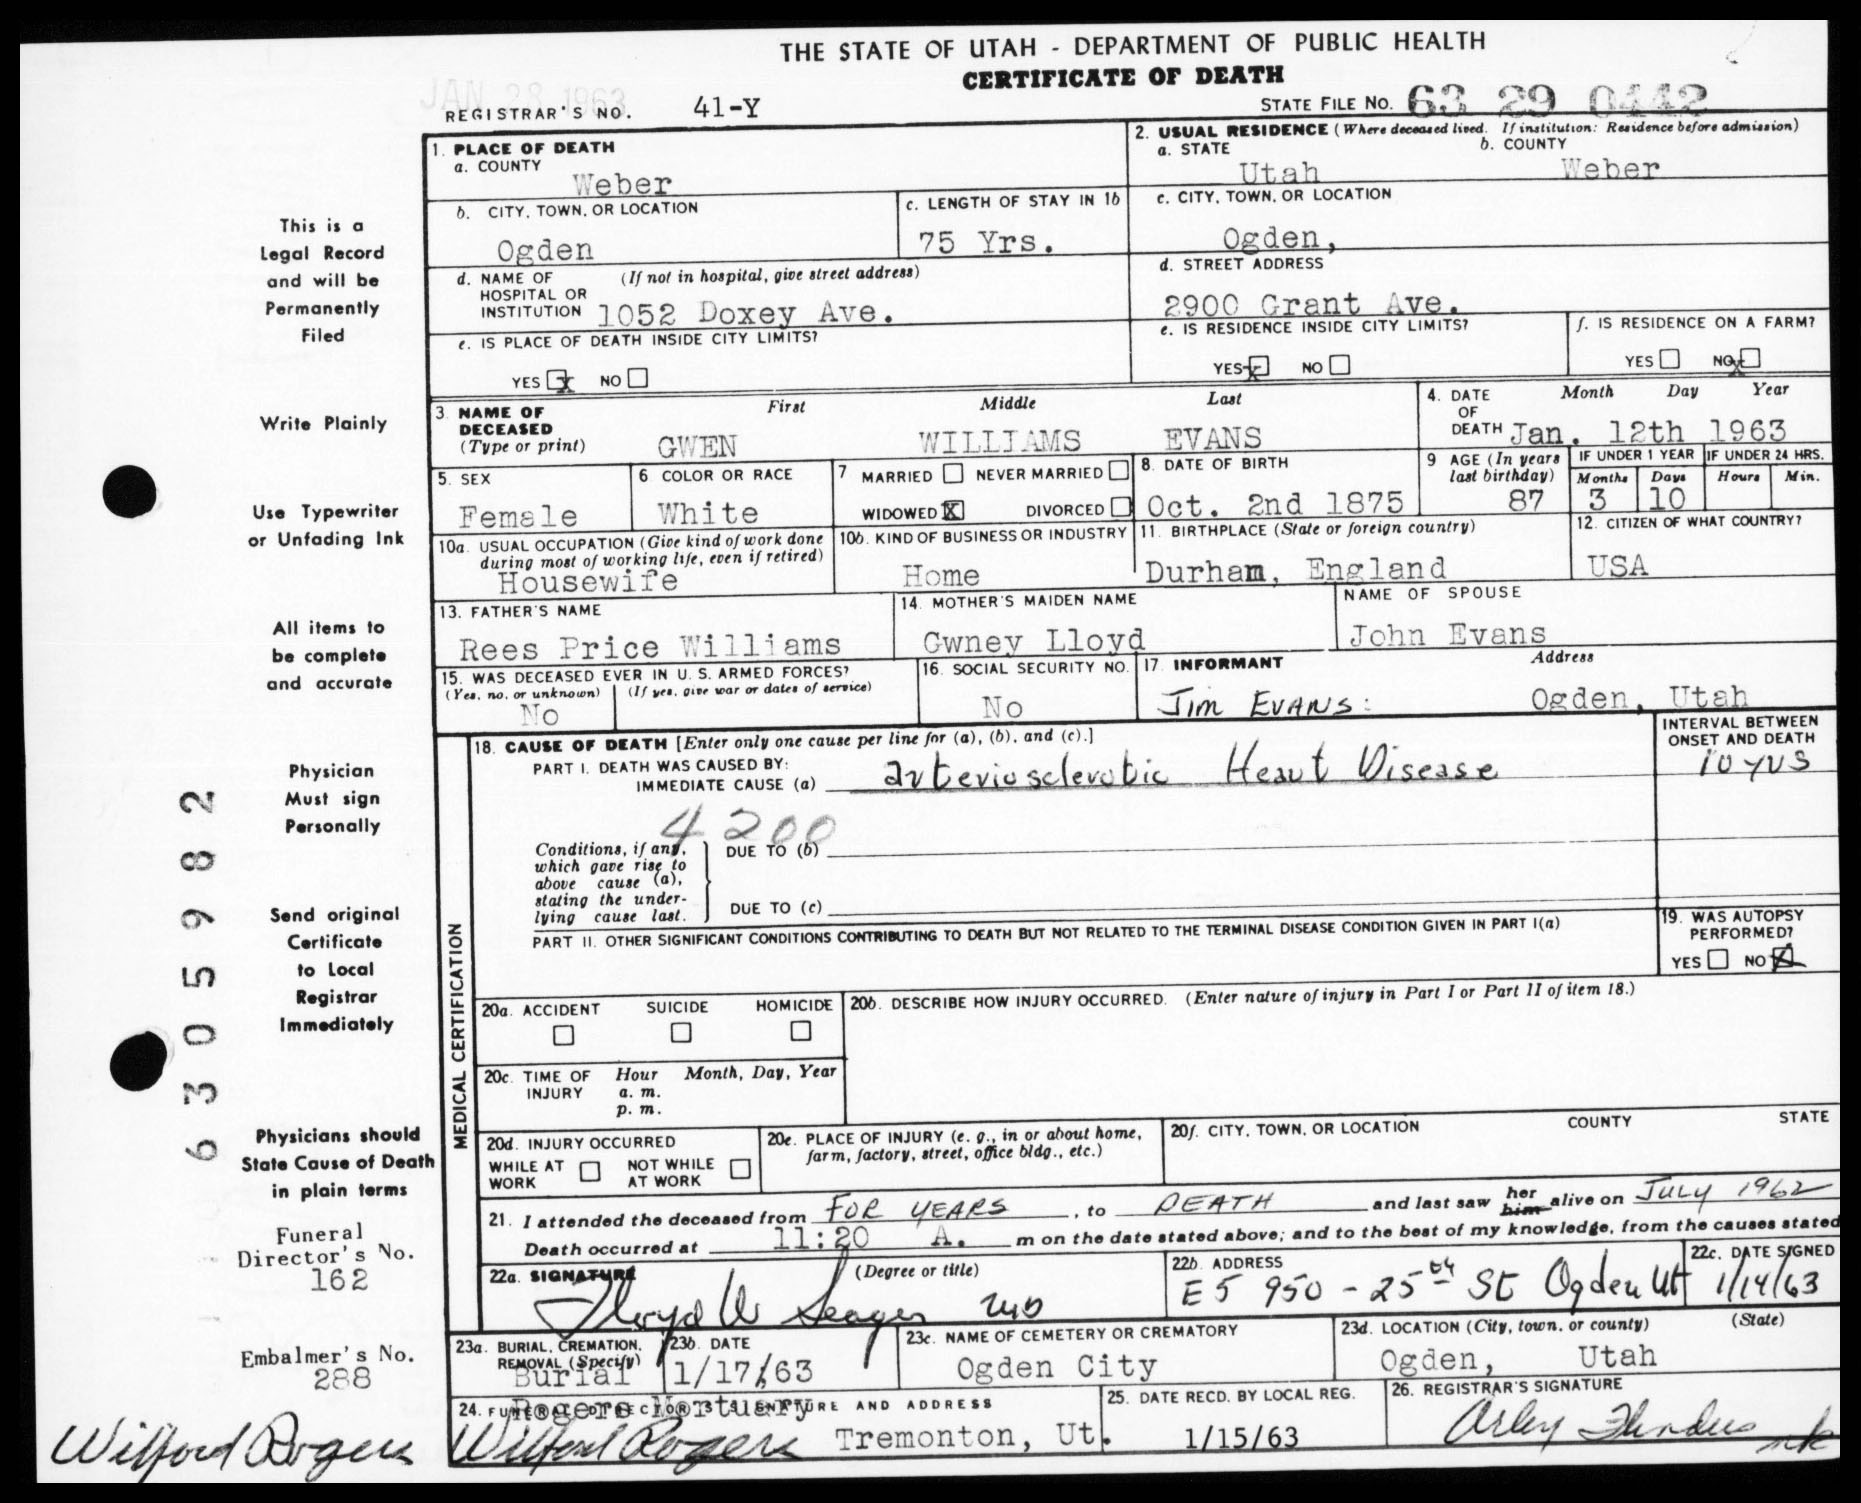 THE STATE OF UTAH - DEPARTMENT OF PUBLIC HEALTH
CERTIFICATE OF DEATH
JAN 28 1963
REGISTRAR'S NO. 41-Y
STATE FILE NO. 63 29 0442
1. PLACE OF DEATH
a. COUNTY
Weber
2. USUAL RESIDENCE (Where deceased lived. If institution: Residence before admission)
a. STATE b. COUNTY
Utah Weber
b. CITY, TOWN, OR LOCATION
Ogden
c. LENGTH OF STAY IN 1b
75 Yrs.
c. CITY, TOWN, OR LOCATION
Ogden,
d. NAME OF HOSPITAL OR INSTITUTION (If not in hospital, give street address)
1052 Doxey Ave.
d. STREET ADDRESS
2900 Grant Ave.
e. IS PLACE OF DEATH INSIDE CITY LIMITS?
YES x NO
e. IS RESIDENCE INSIDE CITY LIMITS?
YES x NO
f. IS RESIDENCE ON A FARM?
YES NO x
3. NAME OF DECEASED (Type or print)
First Middle Last
GWEN WILLIAMS EVANS
4. DATE OF DEATH Month Day Year
Jan. 12th 1963
5. SEX
Female
6 COLOR OR RACE
White
7 MARRIED NEVER MARRIED
WIDOWED X DIVORCED
8. DATE OF BIRTH
Oct. 2nd 1875
9 AGE (In years last birthday)
87
IF UNDER 1 YEAR IF UNDER 24 HRS.
Months Days Hours Min.
3 10
10a. USUAL OCCUPATION (Give kind of work done during most of working life, even if retired)
Housewife
10b. KIND OF BUSINESS OR INDUSTRY
Home
11. BIRTHPLACE (State or foreign country)
Durham, England
12. CITIZEN OF WHAT COUNTRY?
USA
13. FATHER'S NAME
Rees Price Williams
14. MOTHER'S MAIDEN NAME
Gwney Lloyd
NAME OF SPOUSE
John Evans
15. WAS DECEASED EVER IN U. S. ARMED FORCES?
(Yes, no, or unknown) (If yes, give war or dates of service)
No
16. SOCIAL SECURITY NO.
No
17. INFORMANT Address
Jim Evans: Ogden, Utah
18. CAUSE OF DEATH [Enter only one cause per line for (a), (b), and (c).]
INTERVAL BETWEEN ONSET AND DEATH
PART I. DEATH WAS CAUSED BY:
IMMEDIATE CAUSE (a) arteriosclerotic Heart Disease 10 yrs
4200
Conditions, if any, which gave rise to above cause (a), stating the underlying cause last.
DUE TO (b)
DUE TO (c)
PART II. OTHER SIGNIFICANT CONDITIONS CONTRIBUTING TO DEATH BUT NOT RELATED TO THE TERMINAL DISEASE CONDITION GIVEN IN PART I(a)
19. WAS AUTOPSY PERFORMED?
YES NO X
MEDICAL CERTIFICATION
20a. ACCIDENT SUICIDE HOMICIDE
20b. DESCRIBE HOW INJURY OCCURRED. (Enter nature of injury in Part I or Part II of item 18.)
20c. TIME OF INJURY Hour Month, Day, Year
a. m.
p. m.
20d. INJURY OCCURRED
WHILE AT WORK NOT WHILE AT WORK
20e. PLACE OF INJURY (e. g., in or about home, farm, factory, street, office bldg., etc.)
20f. CITY, TOWN, OR LOCATION COUNTY STATE
21. I attended the deceased from FOR YEARS, to DEATH and last saw her him alive on JULY 1962
Death occurred at 11:20 A. m on the date stated above; and to the best of my knowledge, from the causes stated
22a. SIGNATURE (Degree or title)
Floyd W Seager MD
22b. ADDRESS
E5 950 - 25th St Ogden Ut
22c. DATE SIGNED
1/14/63
23a. BURIAL, CREMATION, REMOVAL (Specify)
Burial
23b. DATE
1/17/63
23c. NAME OF CEMETERY OR CREMATORY
Ogden City
23d. LOCATION (City, town, or county) (State)
Ogden, Utah
24. FUNERAL DIRECTOR'S SIGNATURE AND ADDRESS
Rogers Mortuary
Wilford Rogers Tremonton, Ut.
25. DATE RECD. BY LOCAL REG.
1/15/63
26. REGISTRAR'S SIGNATURE
This is a
Legal Record
and will be
Permanently
Filed
Write Plainly
Use Typewriter
or Unfading Ink
All items to
be complete
and accurate
Physician
Must sign
Personally
Send original
Certificate
to Local
Registrar
Immediately
Physicians should
State Cause of Death
in plain terms
Funeral
Director's No.
162
Embalmer's No.
288
Wilford Rogers
6305982